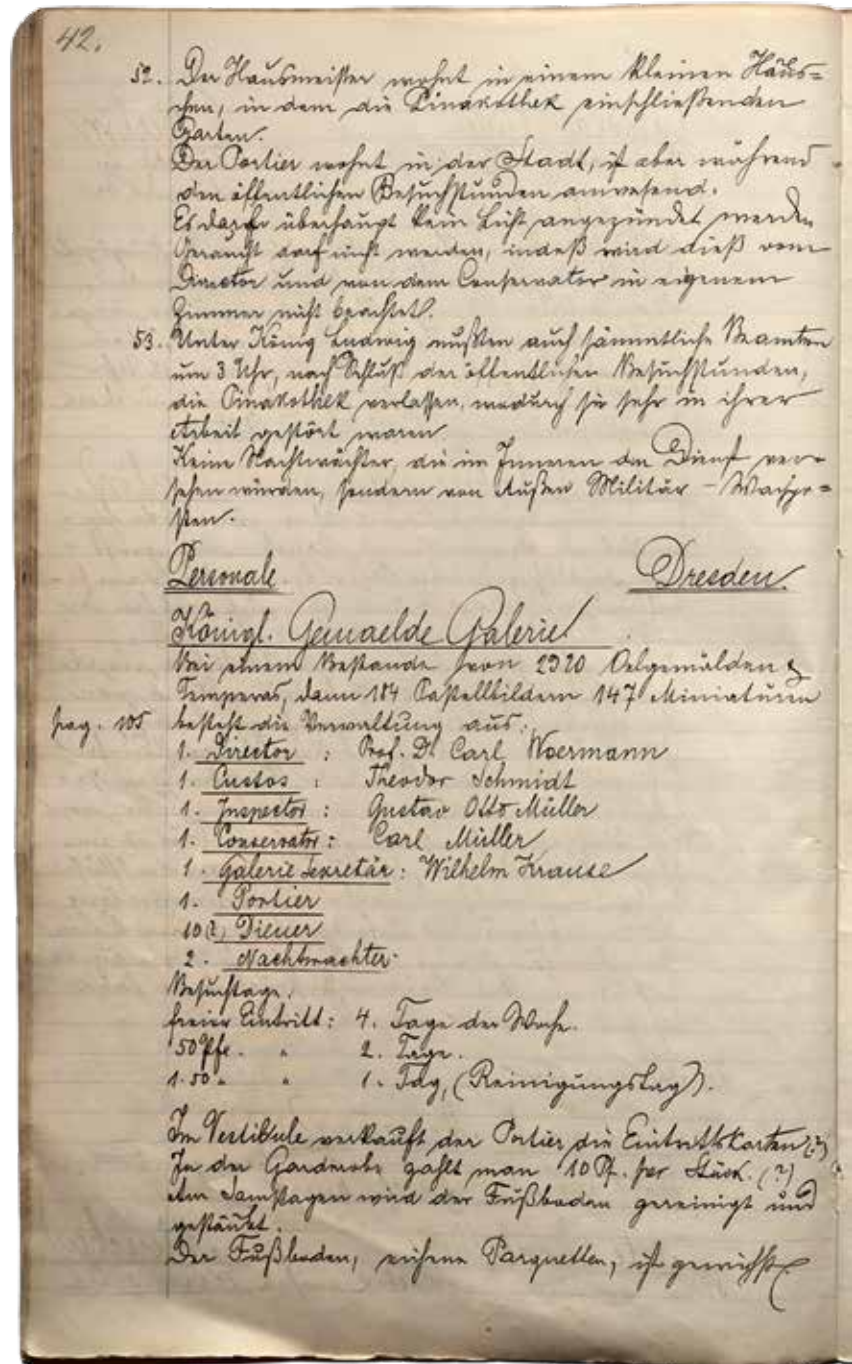 42.
52. Der Hausmeister wohnt in einem kleinen Häus=
chen, in dem die Pinakothek einschließenden
Garten.
Der Portier wohnt in der Stadt, ist aber während
den öffentlichen Besuchstunden anwesend.
Es darf überhaupt kein Licht angezündet werden
Geraucht darf nicht werden, indeß wird dieß vom
Director und von dem Conservator in eigenem
Zimmer nicht beachtet.
53. Unter König Ludwig mußten auch sämmtliche Beamten
um 3 Uhr, nach Schluß der öffentlichen Besuchstunden,
die Pinakothek verlassen, wodurch sie sehr in ihrer
Arbeit gestört waren
Keine Nachtwächter, die im Inneren den Dienst ver=
sehen würden, sondern von Außen Militär - Wachpo=
sten.
Personale Dresden
Königl. Gemaelde Galerie
Bei einem Bestande von 2320 Oelgemälden &
Temperas, dann 184 Pastellbildern 147 Miniaturen
pag. 105 besteht die Verwaltung aus:
1. Director : Prof. Dr. Carl Woermann
1. Custos : Theodor Schmidt
1. Inspector : Gustav Otto Müller
1. Conservator : Carl Müller
1. Galerie Sekretär : Wilhelm Krause
1. Portier
10(?) Diener
2. Nachtwachter.
Besuchstage.
freier Eintritt : 4. Tage der Woche.
50 Pfe. " 2. Tage.
1.50 " " 1. Tag, (Reinigungstag).
Im Vestibule verkauft der Portier die Eintrittskarten (?)
In der Garderobe zahlt man 10 Pf. per Stück. (?)
Am Samstagen wird der Fußboden gereinigt und
gestäubt.
Der Fußboden, eichene Parquetten, ist gewichst.